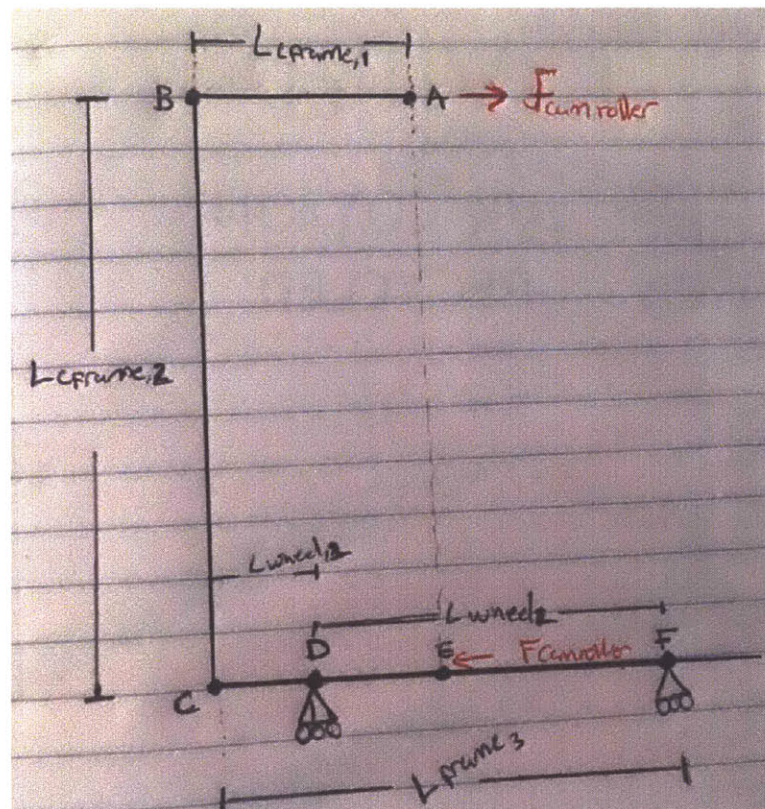 Lcframe,1
B
A
Fcamroller
Lcframe,2
Lwheel,2
Lwheel2
D
E
Fcamroller
F
C
Lframe3